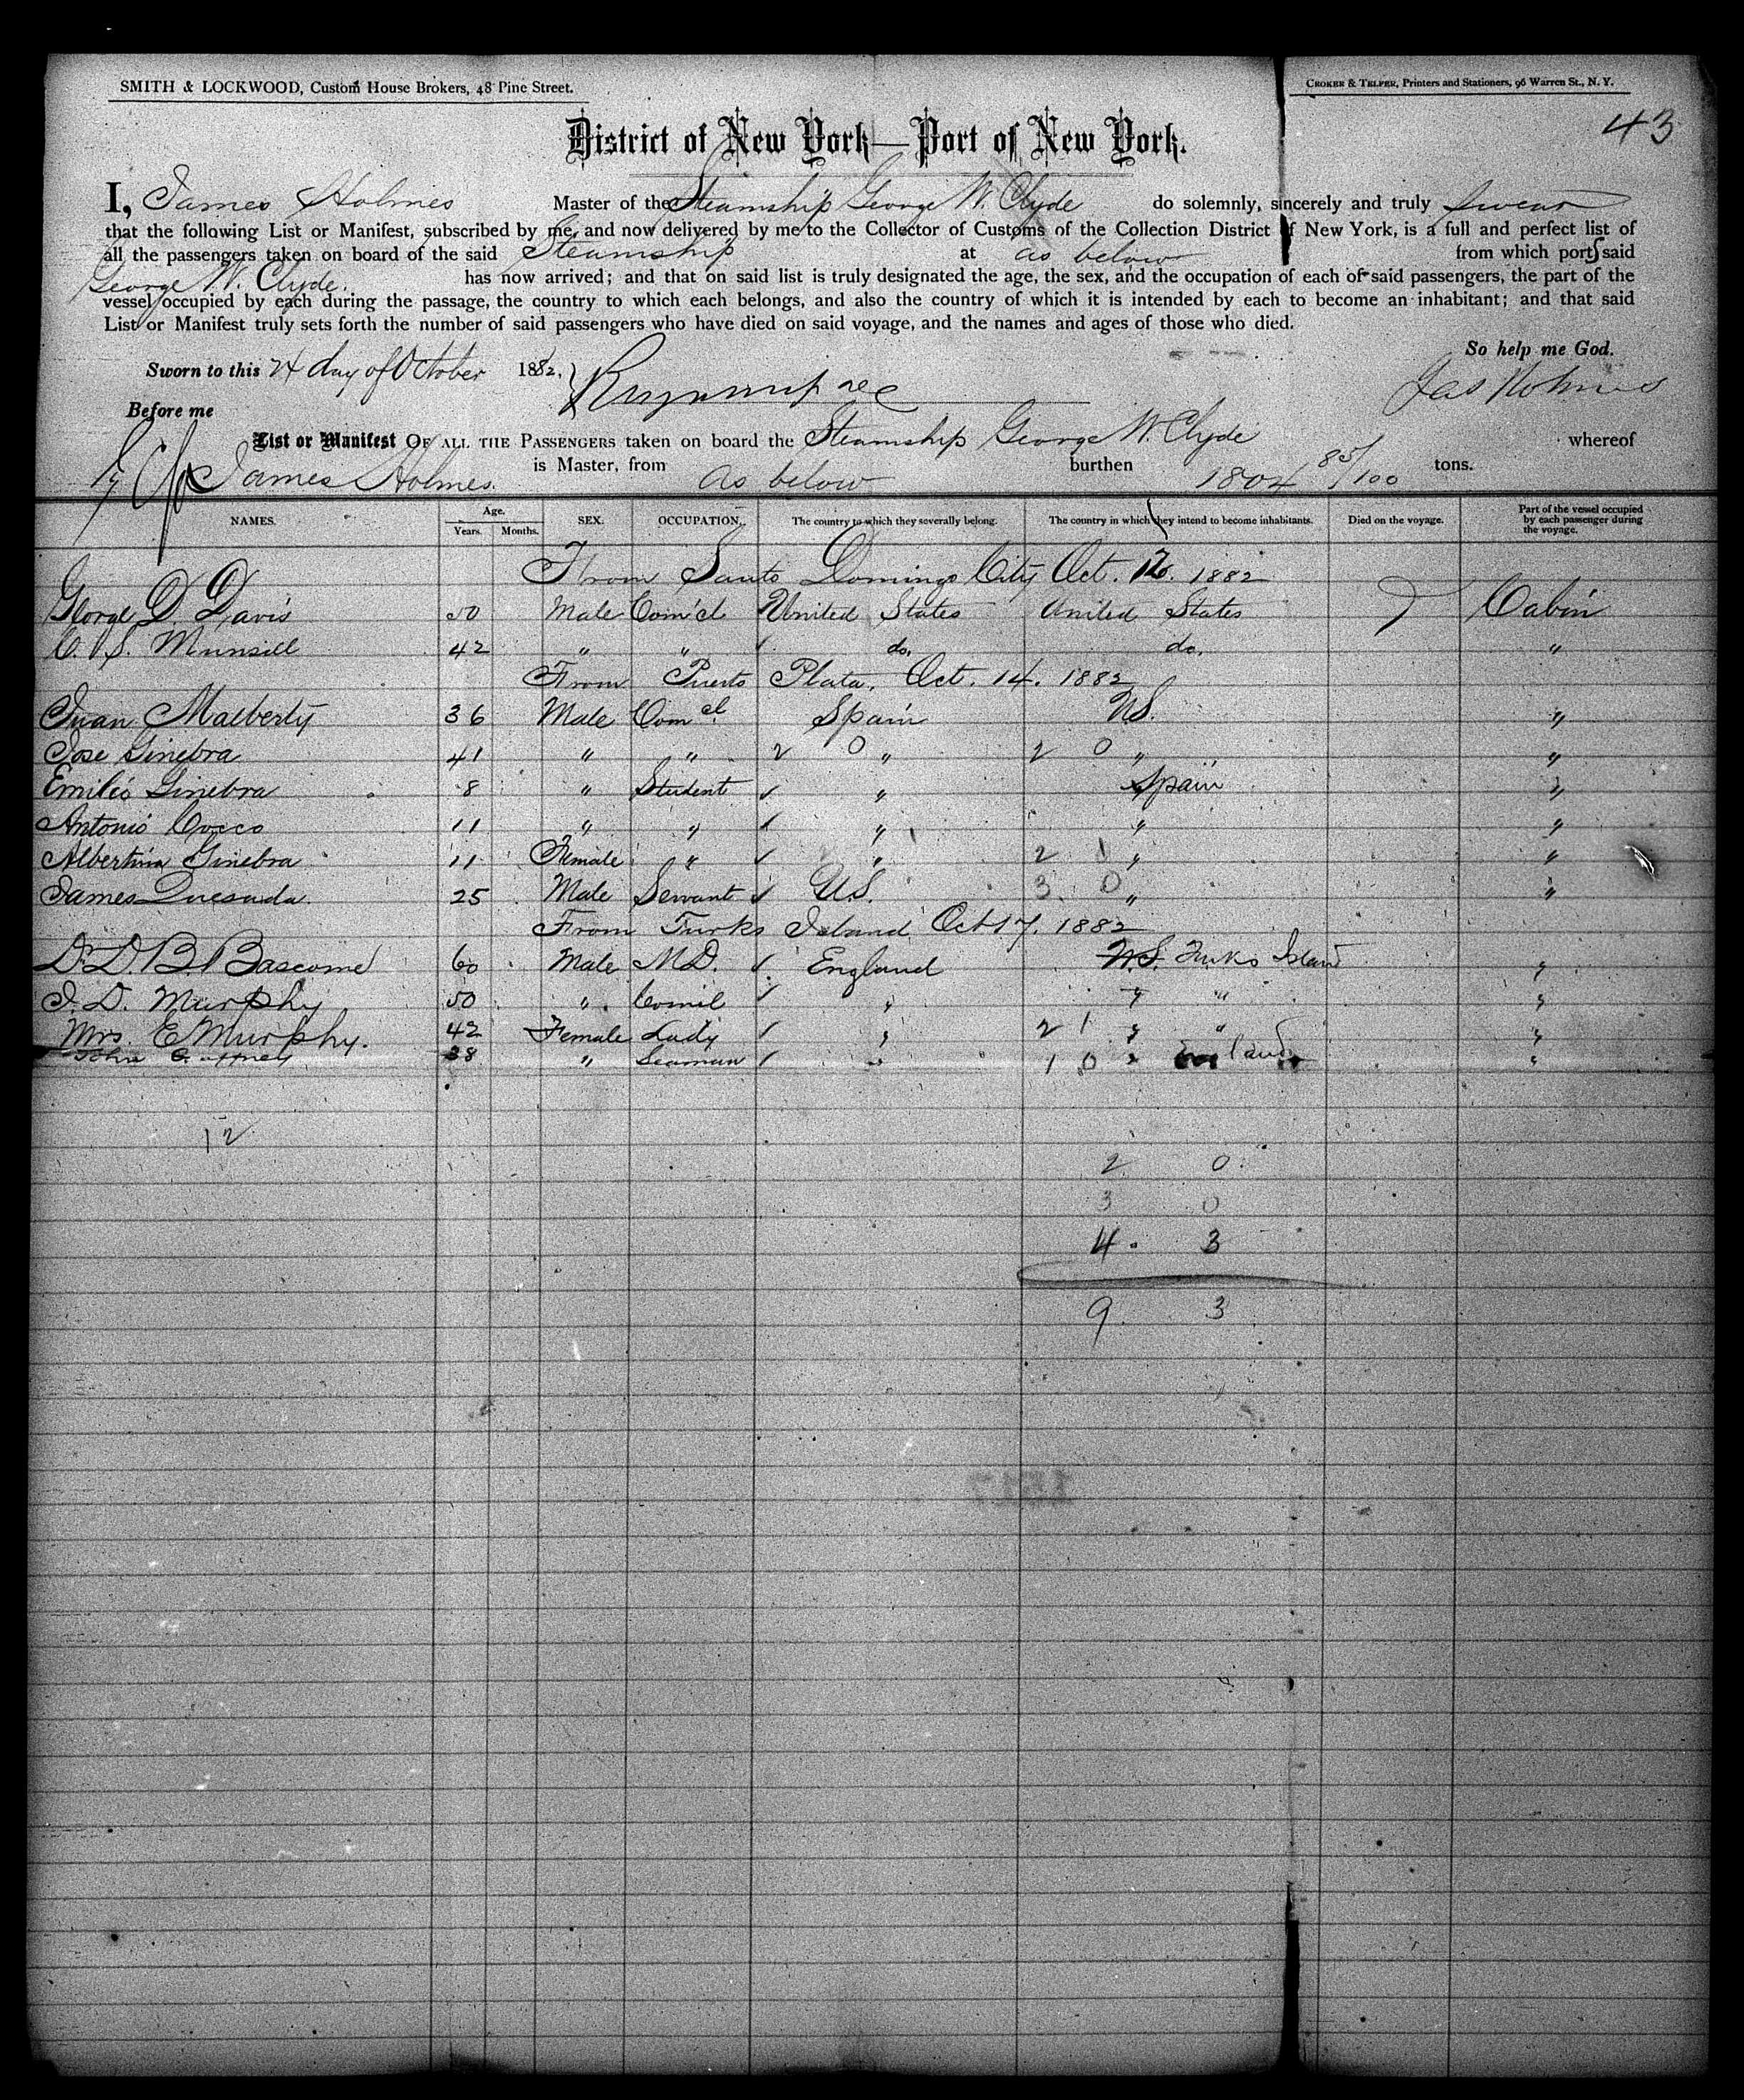 SMITH & LOCKWOOD, Custom House Brokers, 48 Pine Street.
CROKER & TELFER, Printers and Stationers, 96 Warren St., N. Y.
43
District of New York—Port of New York.
I, James Holmes Master of the Steamship George W. Clyde do solemnly, sincerely and truly swear
that the following List or Manifest, subscribed by me, and now delivered by me to the Collector of Customs of the Collection District of New York, is a full and perfect list of
all the passengers taken on board of the said Steamship at as below from which ports said
George W. Clyde. has now arrived; and that on said list is truly designated the age, the sex, and the occupation of each of said passengers, the part of the
vessel occupied by each during the passage, the country to which each belongs, and also the country of which it is intended by each to become an inhabitant; and that said
List or Manifest truly sets forth the number of said passengers who have died on said voyage, and the names and ages of those who died.
So help me God.
Sworn to this 24 day of October 1882.
Jas Holmes
Before me
List or Manifest OF ALL THE PASSENGERS taken on board the Steamship George W. Clyde whereof
James Holmes. is Master, from as below burthen 1804 85/100 tons.
NAMES. Age. Years. Months. SEX. OCCUPATION. The country to which they severally belong. The country in which they intend to become inhabitants. Died on the voyage. Part of the vessel occupied by each passenger during the voyage.
From Santo Domingo City Oct. 12. 1882
George D. Davis 50 Male Com'cl United States United States Cabin
C. S. Munsill 42 " " do. do. "
From Puerto Plata. Oct. 14. 1882
Juan Malberty 36 Male Comcl Spain U.S. "
Jose Ginebra 41 " " 2 0 " 2 0 " "
Emilio Ginebra 8 " Student " Spain "
Antonio Cocco 11 " " " " "
Albertina Ginebra 11 Female " " 2 1 " "
James Quesada. 25 Male Servant U.S. 3 0 " "
From Turks Island Oct 17. 1882
Dr. D. B. Bascome 60 Male M.D. England U.S. Turks Island "
J. D. Murphy 50 " Comcl " " " "
Mrs. E Murphy. 42 Female Lady " 2 1 " " "
John 38 " Seaman " 1 0 " England "
12
2 0
3 0
4 3
9 3